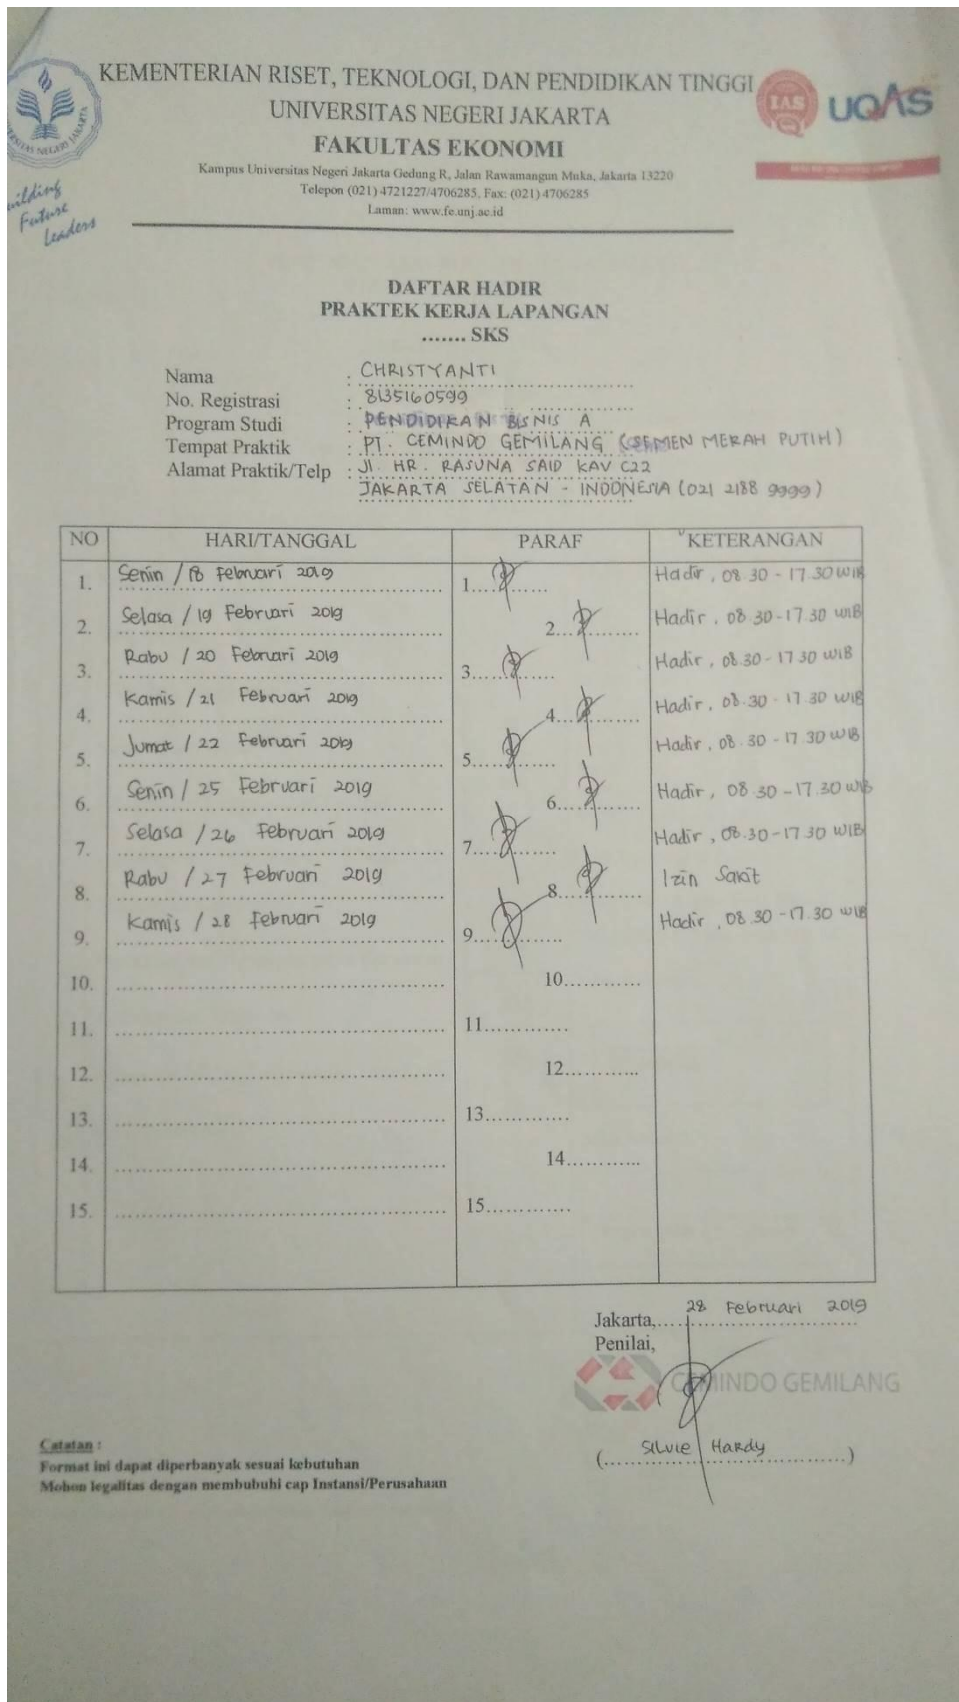 KEMENTERIAN RISET, TEKNOLOGI, DAN PENDIDIKAN TINGGI
UNIVERSITAS NEGERI JAKARTA
FAKULTAS EKONOMI
Kampus Universitas Negeri Jakarta Gedung R, Jalan Rawamangun Muka, Jakarta 13220
Telepon (021) 4721227/4706285, Fax: (021) 4706285
Laman: www.fe.unj.ac.id
NEGERI JAKARTA
Building
Future
Leaders
IAS
UQAS
DAFTAR HADIR
PRAKTEK KERJA LAPANGAN
....... SKS
Nama : CHRISTYANTI
No. Registrasi : 8135160599
Program Studi : PENDIDIKAN BISNIS A
Tempat Praktik : PT. CEMINDO GEMILANG (SEMEN MERAH PUTIH)
Alamat Praktik/Telp : Jl. HR. RASUNA SAID KAV C22
JAKARTA SELATAN - INDONESIA (021 2188 9999)
NO HARI/TANGGAL PARAF KETERANGAN
1. Senin / 18 Februari 2019 1. Hadir, 08.30 - 17.30 WIB
2. Selasa / 19 Februari 2019 2. Hadir, 08.30 - 17.30 WIB
3. Rabu / 20 Februari 2019 3. Hadir, 08.30 - 17.30 WIB
4. Kamis / 21 Februari 2019 4. Hadir, 08.30 - 17.30 WIB
5. Jumat / 22 Februari 2019 5. Hadir, 08.30 - 17.30 WIB
6. Senin / 25 Februari 2019 6. Hadir, 08.30 - 17.30 WIB
7. Selasa / 26 Februari 2019 7. Hadir, 08.30 - 17.30 WIB
8. Rabu / 27 Februari 2019 8. Izin Sakit
9. Kamis / 28 Februari 2019 9. Hadir, 08.30 - 17.30 WIB
10. 10.
11. 11.
12. 12.
13. 13.
14. 14.
15. 15.
Jakarta, 28 Februari 2019
Penilai,
CEMINDO GEMILANG
(Silvie Hardy)
Catatan :
Format ini dapat diperbanyak sesuai kebutuhan
Mohon legalitas dengan membubuhi cap Instansi/Perusahaan